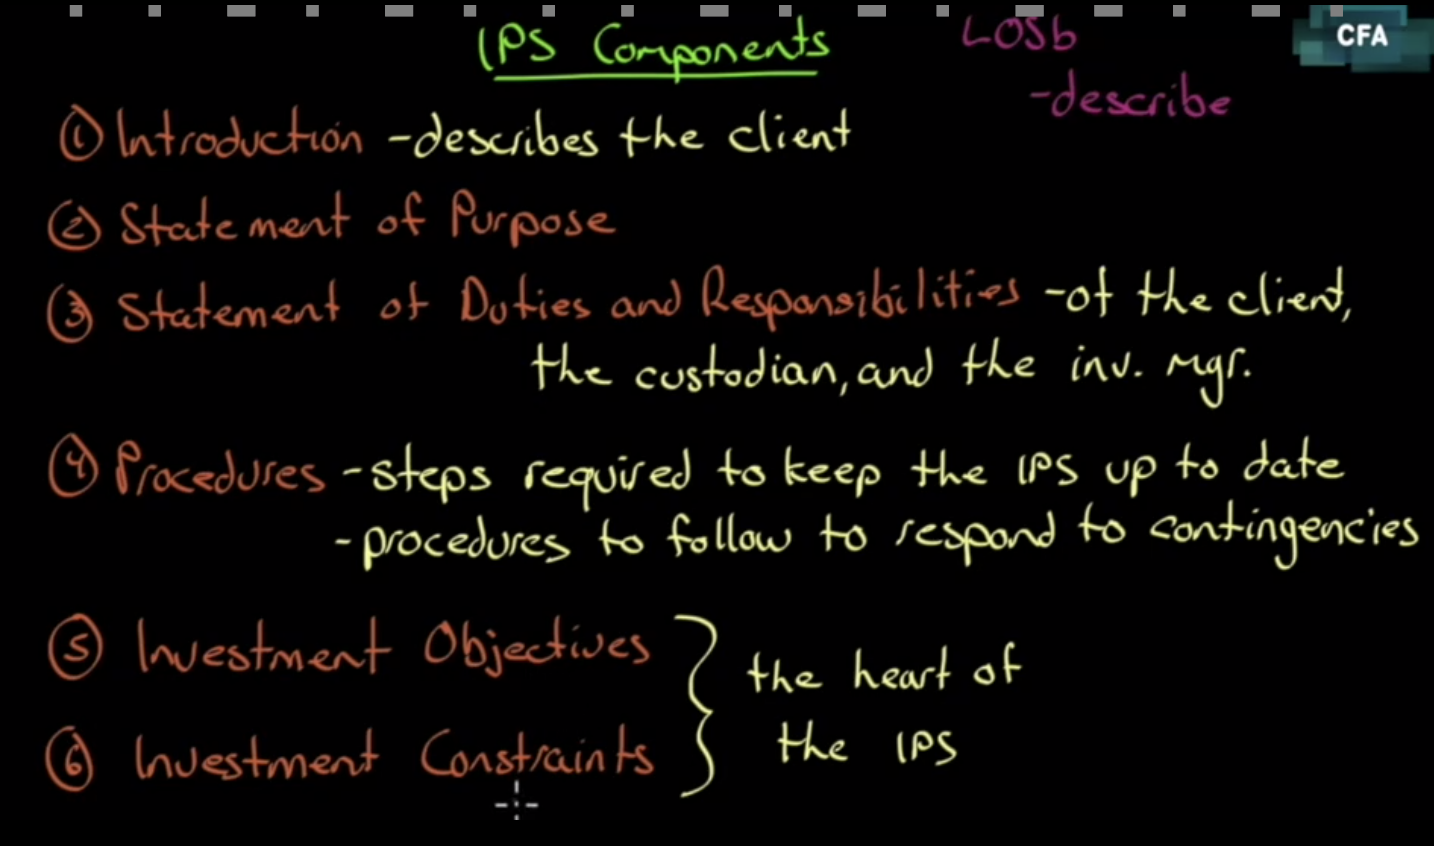 IPS Components
LOSb
CFA
-describe
① Introduction -describes the client
② Statement of Purpose
③ Statement of Duties and Responsibilities -of the client,
the custodian, and the inv. mgr.
④ Procedures -steps required to keep the IPS up to date
-procedures to follow to respond to contingencies
⑤ Investment Objectives
⑥ Investment Constraints
the heart of
the IPS